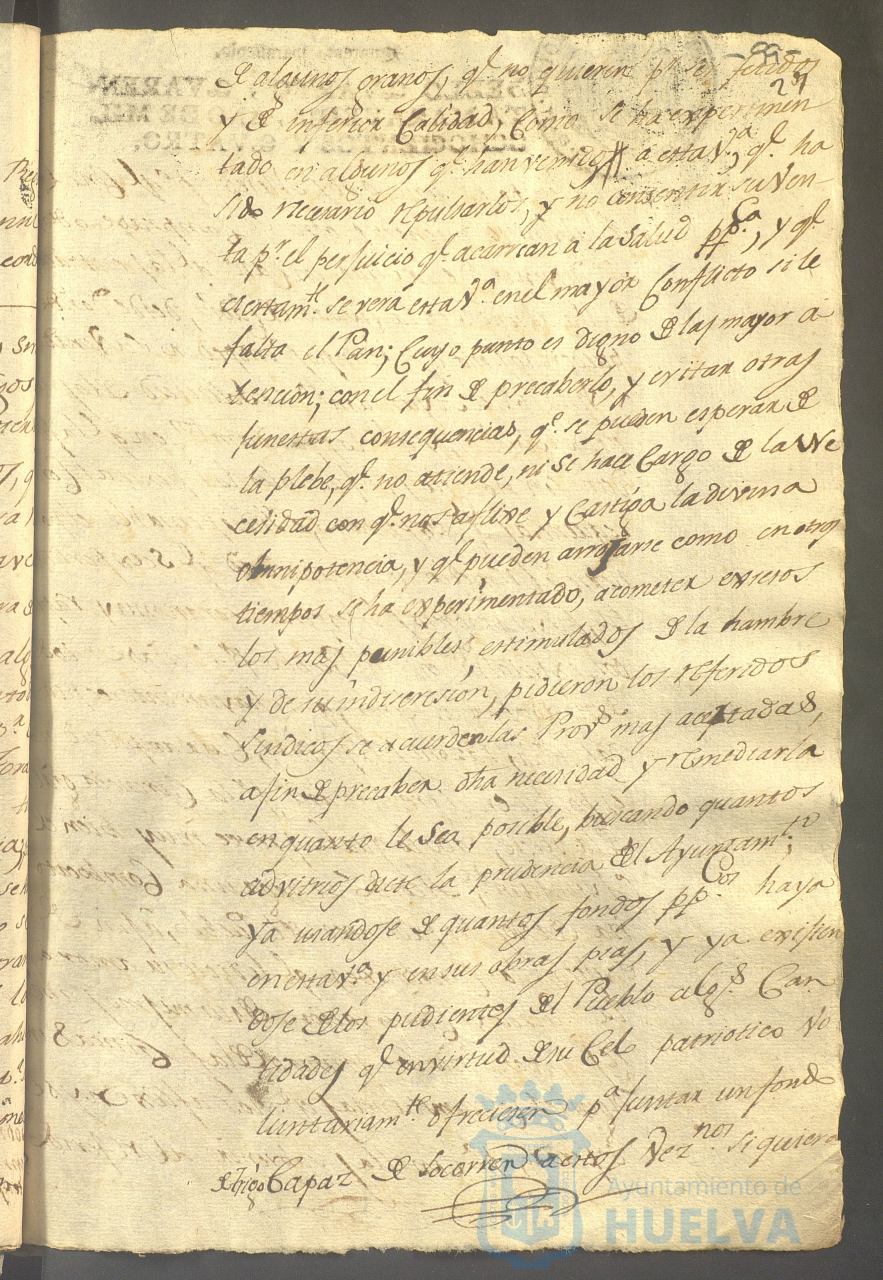 -99-
29
de algunos granos, qe. no quieren pr. ser fetidos
y de inferior Calidad, como se ha experimen
tado en algunos qe. han venido a esta Va., qe. ha
sido necesario repulsarlos, y no consentir su Ven-
ta pr. el perjuicio qe. acarrean a la Salud ppca., y qe.
ciertamte. se verá esta Va. en el mayor Conflicto si le
falta el Pan; Cuyo punto es digno de la mayor a
tencion; con el fin de precaberlo, y evitar otras
funestas consequencias, qe. se pueden esperar de
la plebe, qe. no atiende, ni se hace Cargo de la Ne
cesidad con qe. nos aflixe y Castiga la divina
omnipotencia, y qe. pueden arrojarse como en otros
tiempos se ha experimentado, a cometer excesos
los mas punibles estimulados de la hambre
y de su indiscresion, pidieron los referidos
Sindicos se acuerden las Provs. mas aceptadas,
a fin de precaber dha necesidad y remediarla
en quanto le sea posible, buscando quantos
advitrios dicte la prudencia del Ayuntamto.;
ya usandose de quantos fondos ppcos. haya
en esta Va. y en sus obras pias, y ya exijien
dose de los pudientes del Pueblo algs. Can
tidades qe. en virtud de su Celo patriotico Vo
luntariamte. ofrecieren pa. juntar un fondo
de trigo Capaz de socorrer a estos Veznos. siquiera
Ayuntamiento de
HUELVA